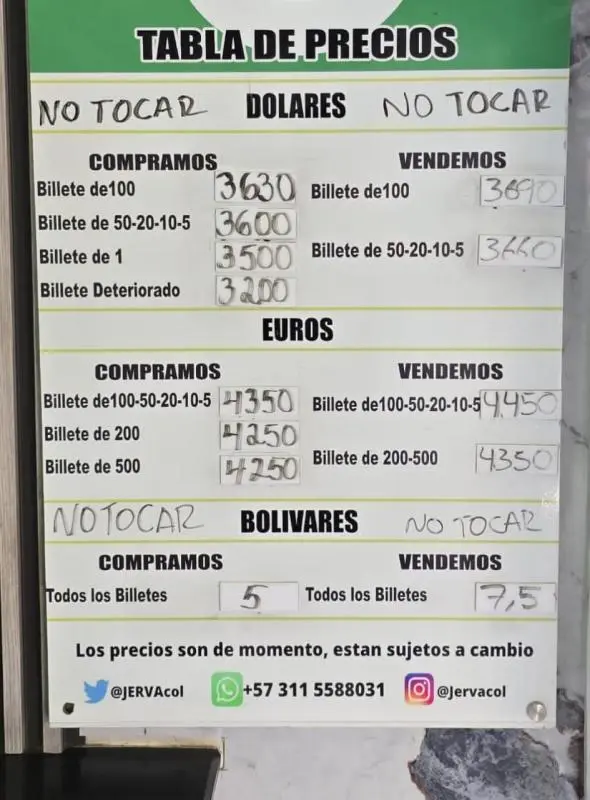 TABLA DE PRECIOS
NO TOCAR DOLARES NO TOCAR
COMPRAMOS VENDEMOS
Billete de 100 3630 Billete de100 3690
Billete de 50-20-10-5 3600
Billete de 50-20-10-5 3660
Billete de 1 3500
Billete Deteriorado 3200
EUROS
COMPRAMOS VENDEMOS
Billete de100-50-20-10-5 4350 Billete de100-50-20-10-5 4.450
Billete de 200 4250
Billete de 200-500 4350
Billete de 500 4250
NO TOCAR BOLIVARES NO TOCAR
COMPRAMOS VENDEMOS
Todos los Billetes 5 Todos los Billetes 7,5
Los precios son de momento, estan sujetos a cambio
@JERVAcol +57 311 5588031 @Jervacol